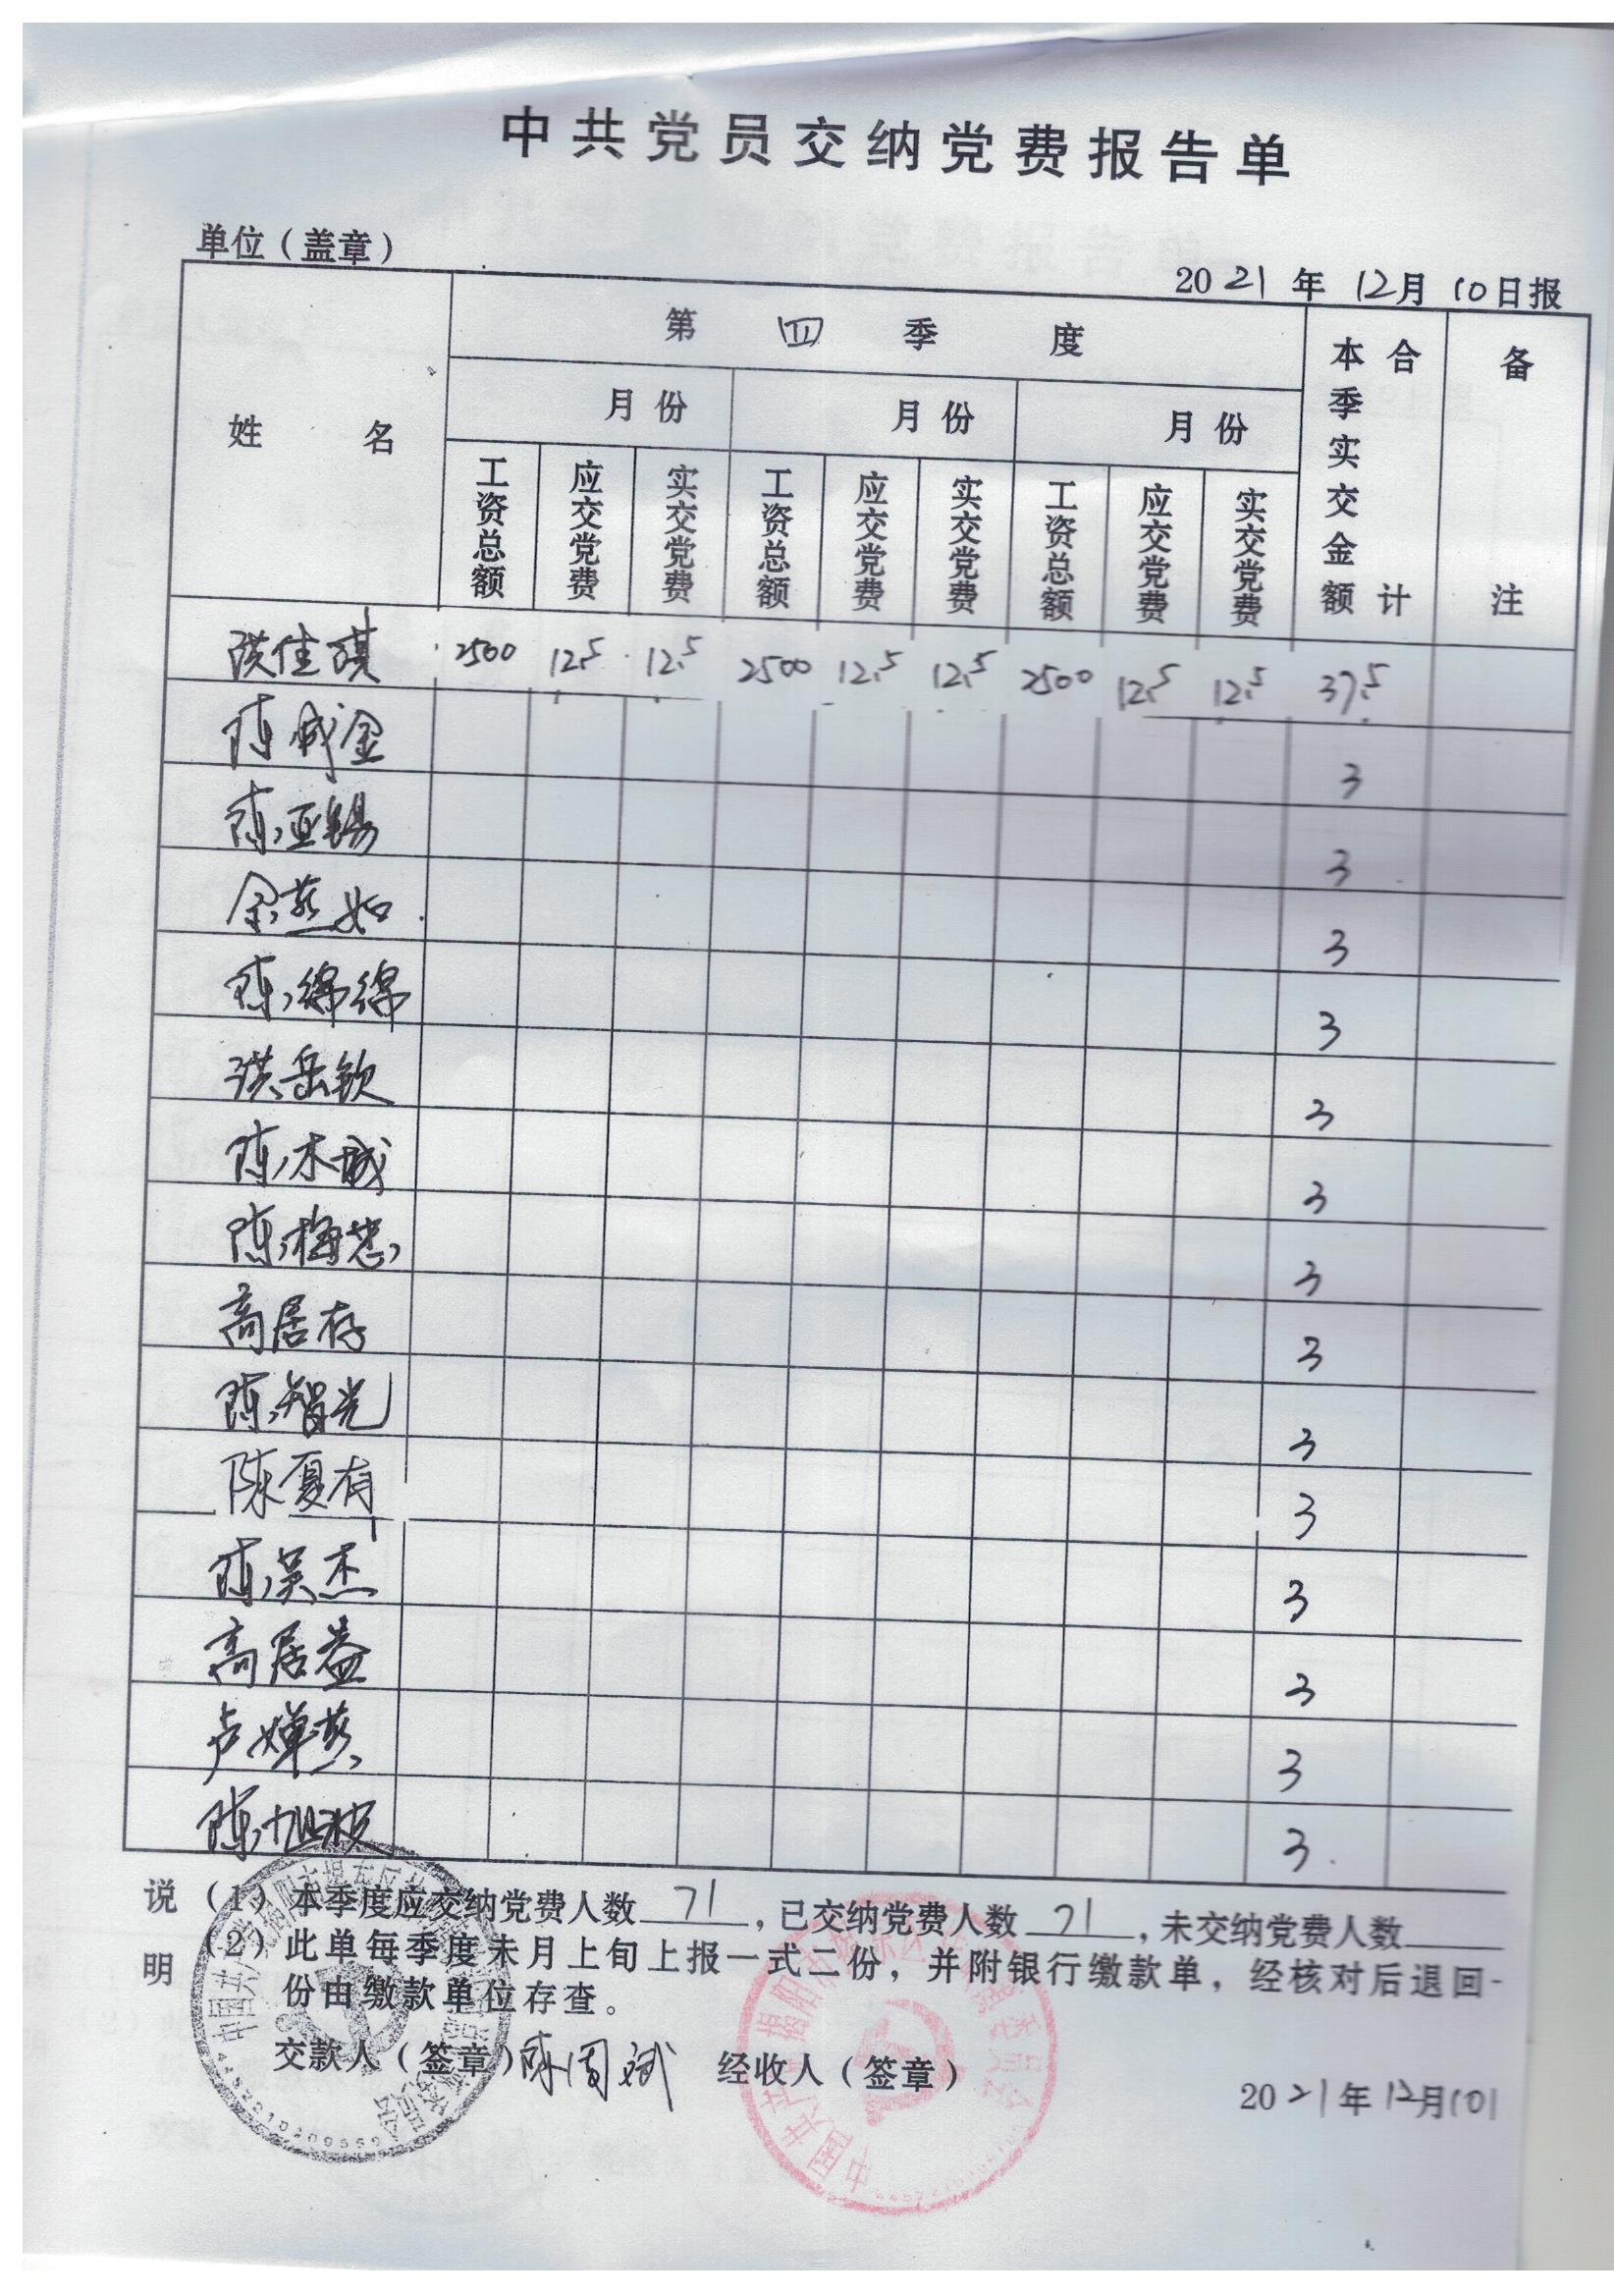 中共党员交纳党费报告单
单位（盖章）
2021年12月10日报
姓名 第四季度 本季实交金额合计 备注
月份 月份 月份
工资总额 应交党费 实交党费 工资总额 应交党费 实交党费 工资总额 应交党费 实交党费
洪佳琪 2500 12.5 12.5 2500 12.5 12.5 2500 12.5 12.5 37.5
陈成金 3
陈亚锡 3
余燕如 3
陈绵绵 3
洪岳钦 3
陈木城 3
陈梅 3
高居存 3
陈智光 3
陈夏有 3
陈吴杰 3
高居益 3
卢婵燕 3
陈旭波 3
说明
（1）本季度应交纳党费人数71，已交纳党费人数71，未交纳党费人数
（2）此单每季度末月上旬上报一式二份，并附银行缴款单，经核对后退回一
份由缴款单位存查。
交款人（签章）陈周斌 经收人（签章）
2021年12月10日